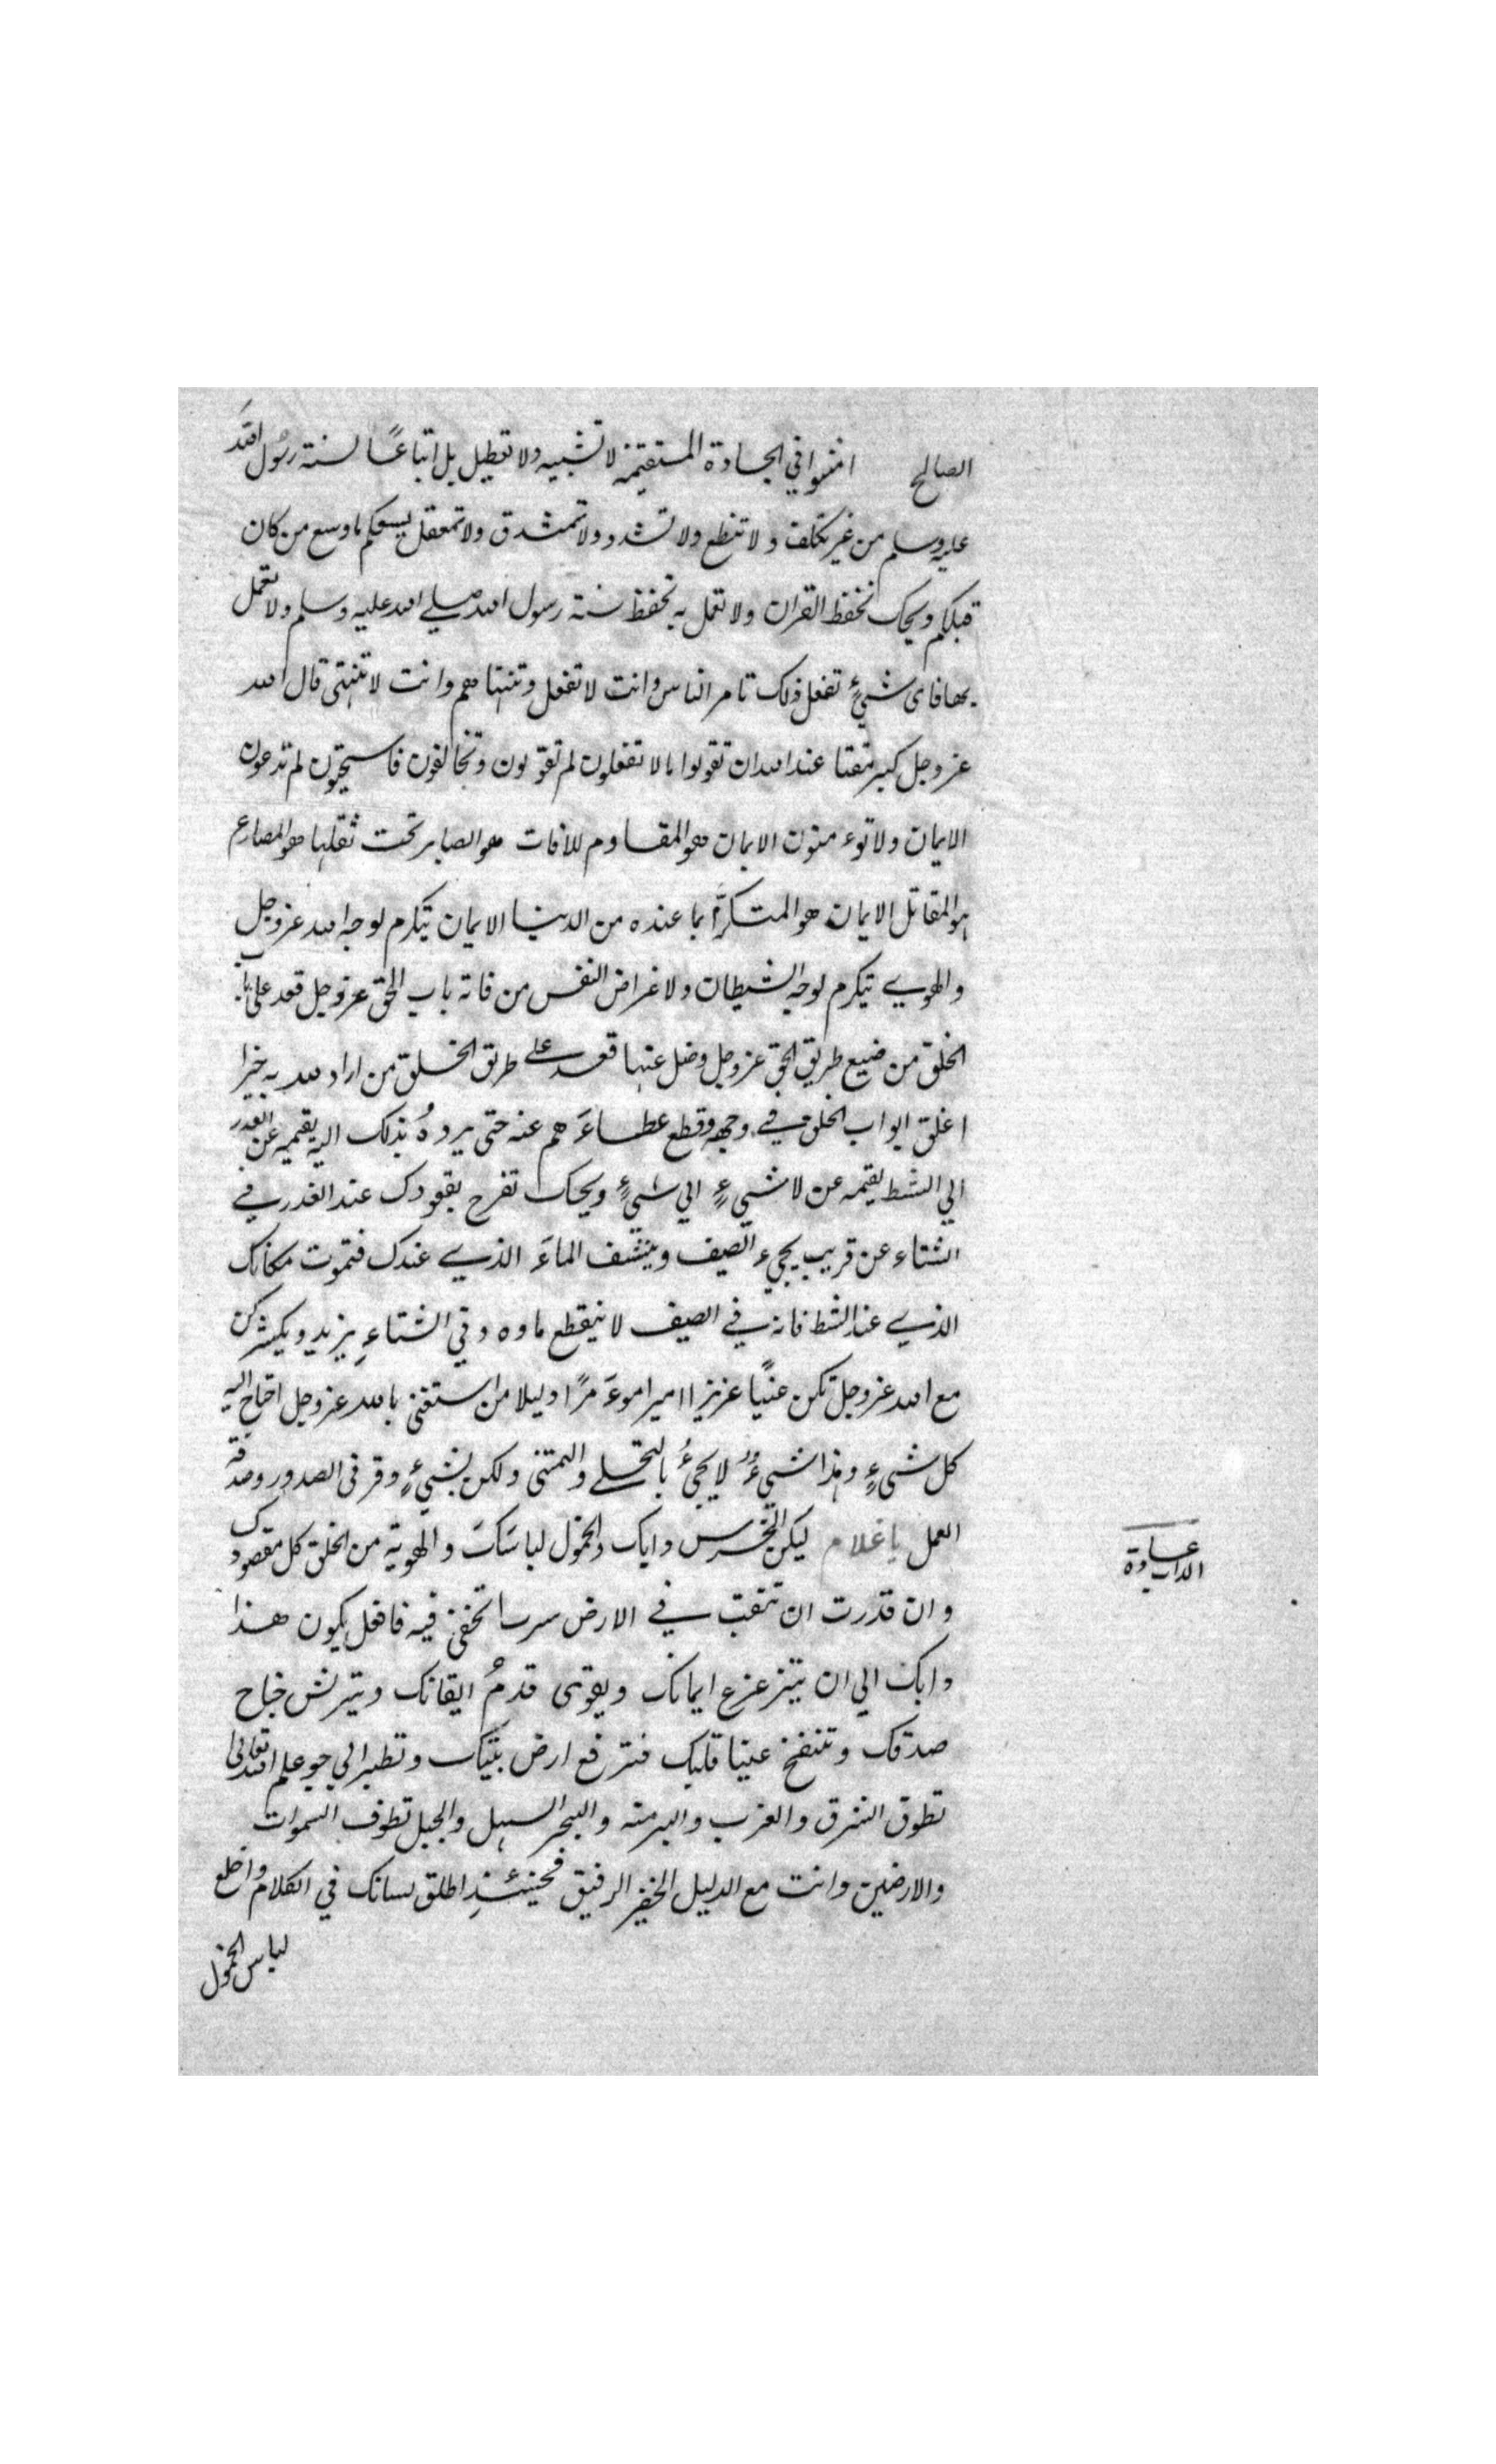 الصالح امشوا في الجادة المستقيمة لا تشبيه ولا تعطيل بل اتباعًا لسنة رسول الله
عليه وسلم من غير تكلف ولا تنطع ولا تشدد ولا تمشدق ولا تمعقل يسعكم ما وسع من كان
قبلكم ويحك تحفظ القران ولا تعمل به تحفظ سنة رسول الله صلي الله عليه وسلم ولا تعمل
بها فاى شيءٍ تفعل ذلك تامر الناس وانت لا تفعل وتنهاهم وانت لا تنتهى قال الله
عز وجل كبر مقتا عند الله ان تقولوا ما لا تفعلون لم تقولون وتخالفون فاستحيون لم تدعون
الايمان ولا توءمنون الايمان هو المقاوم للافات هو الصابر تحت ثقلها هو المصارع
هو المقاتل الايمان هو المتكرّم بما عنده من الدنيا الايمان يتكرم لوجه الله عز وجل
والهوي يتكرم لوجه الشيطان ولاغراض النفس من فاته باب الحق عز وجل قعد علي باب
الخلق من ضيع طريق الحق عز وجل وضل عنها قعد على طريق الخلق من اراد الله به خيرا
اغلق ابواب الخلق في وجهه وقطع عطاءَهم عنه حتى يردهُ بذلك اليه يقيمه عن الغدر
الي الشط يقيمه عن لا شيءٍ الي شيءٍ ويحك تفرح بقعودك عند الغدر في
الشتاء عن قريب يجيء الصيف وينشف الماءَ الذي عندك فتموت مكانك
الذي عند الشط فانه في الصيف لا ينقطع ماوه وفي الشتاءِ يزيد ويكثر كن
مع الله عز وجل تكن غنيًا عزيزا اميرا موءَمرًا دليلا من استغنى بالله عز وجل احتاج اليه
كل شيءٍ وهذا شيءٌ لا يجيءُ بالتحلي والتمنى ولكن بشيءٍ وقر في الصدور وصدقه
العمل يا غلام ليكن الخرس دابك والخمول لباسَكَ والهوية من الخلق كل مقصودك
وان قدرت ان تنقب في الارض سربا تختفي فيه فافعل يكون هذا
دابك الي ان يتزعزع ايمانك ويقوى قدمُ ايقانك ويتريش جناح
صدقك وتنفتح عينا قلبك فترفع ارض بيتك وتطير الي جو علم الله تعالى
تطوق الشرق والغرب والبر منه والبحر السهل والجبل تطوف السموات
والارضين وانت مع الدليل الخفير الرفيق فحينئذٍ اطلق لسانك في الكلام واخلع
لباس الخمول
عادة
الداب